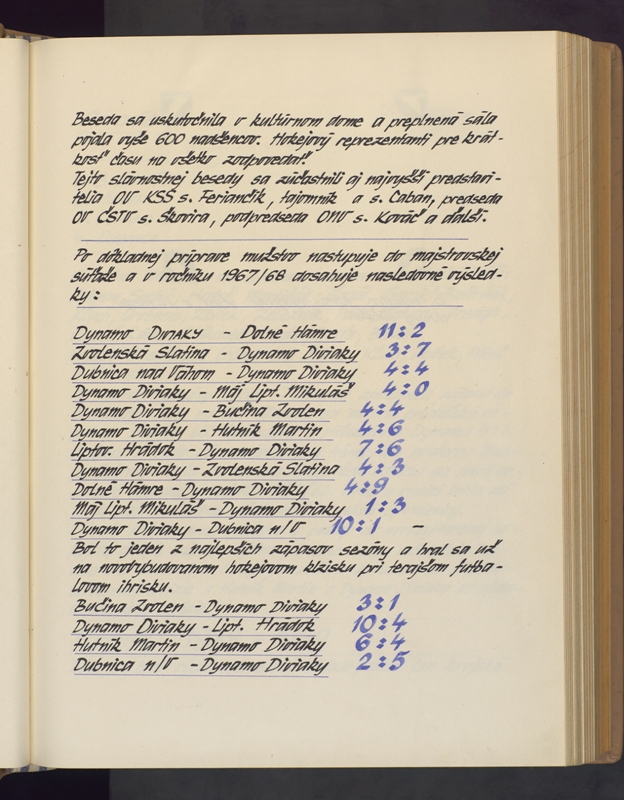 Beseda sa uskutočnila v kultúrnom dome a preplnená sála
pojala vyše 600 nadšencov. Hokejový reprezentanti pre krát-
kosť času na všetko zodpovedať.
Tejto slávnostnej besedy sa zúčastnili aj najvyšší predstavi-
telia OV KSS s. Feriančík, tajomník a s. Caban, predseda
OV ČSTV s. Škovira, podpredseda ONV s. Kováč a ďalší.
Po dôkladnej príprave mužstvo nastupuje do majstrovskej
súťaže a v ročníku 1967/68 dosahuje nasledovné výsled-
ky:
Dynamo DIVIAKY - Dolné Hámre 11:2
Zvolenská Slatina - Dynamo Diviaky 3:7
Dubnica nad Váhom - Dynamo Diviaky 4:4
Dynamo Diviaky - Máj Lipt. Mikuláš 4:0
Dynamo Diviaky - Bučina Zvolen 4:4
Dynamo Diviaky - Hutník Martin 4:6
Liptov. Hrádok - Dynamo Diviaky 7:6
Dynamo Diviaky - Zvolenská Slatina 4:3
Dolné Hámre - Dynamo Diviaky 4:9
Máj Lipt. Mikuláš - Dynamo Diviaky 1:3
Dynamo Diviaky - Dubnica n/V 10:1 -
Bol to jeden z najlepších zápasov sezóny a hral sa už
na novovybudovanom hokejovom klzisku pri terajšom futba-
lovom ihrisku.
Bučina Zvolen - Dynamo Diviaky 3:1
Dynamo Diviaky - Lipt. Hrádok 10:4
Hutník Martin - Dynamo Diviaky 6:4
Dubnica n/V - Dynamo Diviaky 2:5